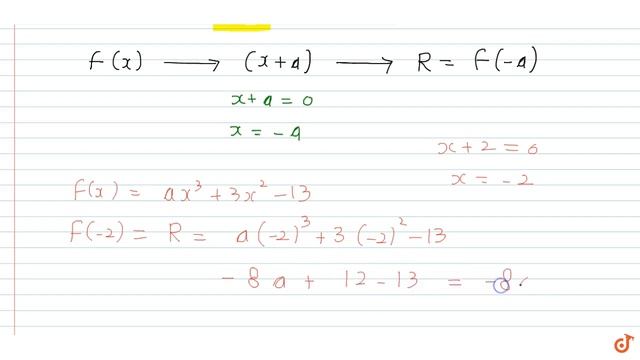 F(x) ⟶ (x+a) ⟶ R = F(-a)
x+a = 0
x = -a
x+2 = 0
x = -2
F(x) = ax³ + 3x² - 13
F(-2) = R = a(-2)³ + 3(-2)² - 13
-8a + 12 - 13 = -8